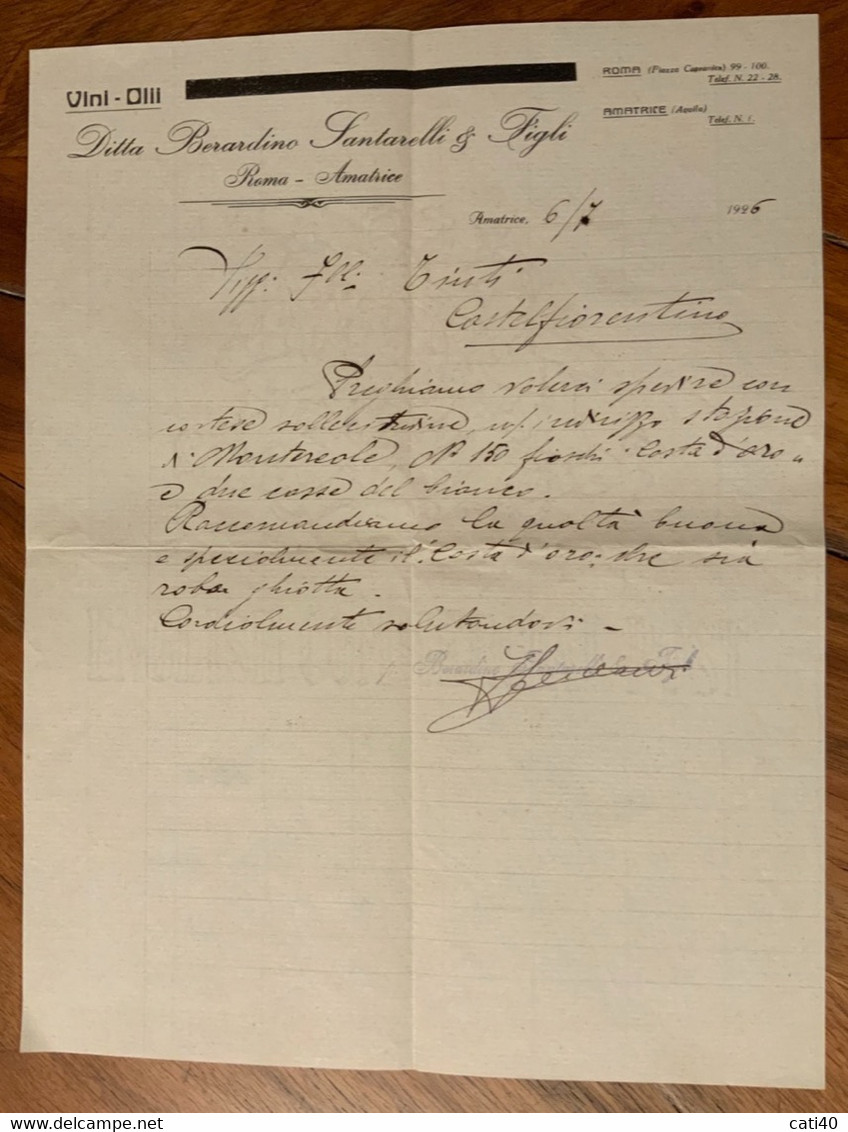 Vini - Olii
Ditta Berardino Santarelli & Figli
Roma - Amatrice
ROMA (Piazza Capranica) 99 - 100.
Telef. N. 22 - 28.
AMATRICE (Aquila)
Telef. N. 1.
Amatrice, 6/7 1926
Sigg. Flli. Tinti
Castelfiorentino
Preghiamo volerci spedire con
cortese sollecitudine, indirizzo stazione
di Montereale, N 150 fiaschi "Costa d'oro"
e due casse del bianco.
Raccomandiamo la qualtà buona
e specialmente il "Costa d'oro" che sia
roba ghiotta.
Cordialmente salutandovi -
Berardino Santarelli & Figli
cati40